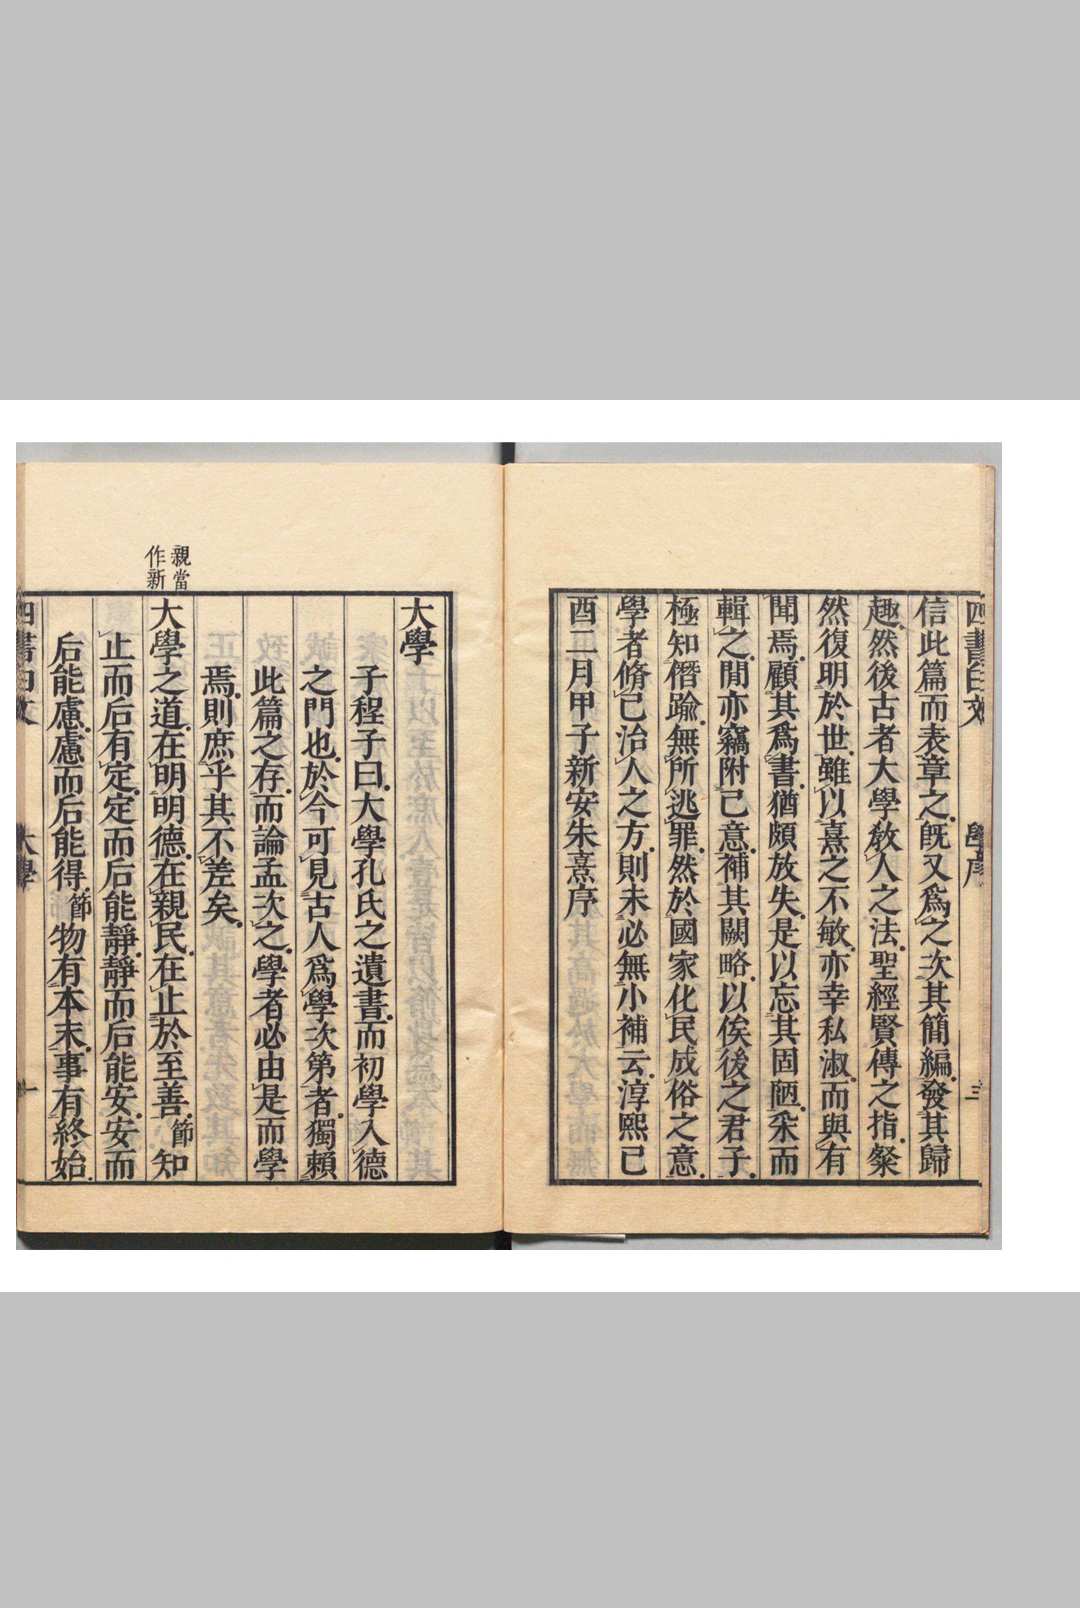 信此篇而表章之既又爲之次其簡編發其歸
趣然後古者大學教人之法聖經賢傳之指粲
然復明於世雖以熹之不敏亦幸私淑而與有
聞焉顧其爲書猶頗放失是以忘其固陋采而
輯之間亦竊附己意補其闕略以俟後之君子
極知僭踰無所逃罪然於國家化民成俗之意
學者脩己治人之方則未必無小補云淳熙己
酉二月甲子新安朱熹序
大學
子程子曰大學孔氏之遺書而初學入德
之門也於今可見古人爲學次第者獨賴
此篇之存而論孟次之學者必由是而學
焉則庶乎其不差矣
親當
作新
大學之道在明明德在親民在止於至善節知
止而后有定定而后能靜靜而后能安安而
后能慮慮而后能得節物有本末事有終始
大學